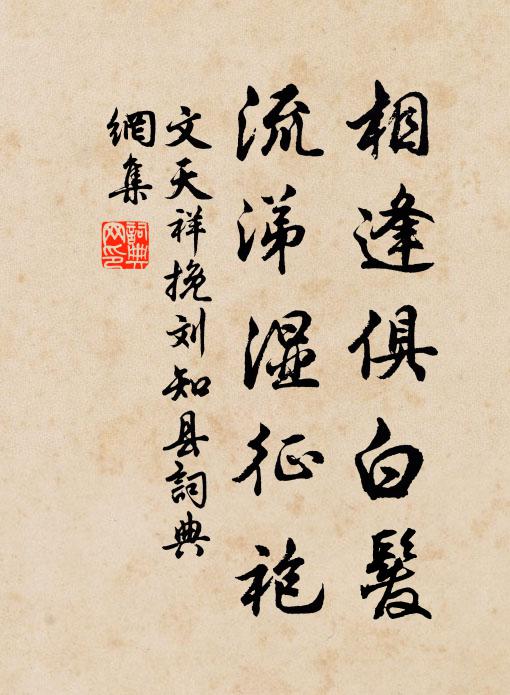 相逢俱白髮
流涕湿征袍
文天祥挽刘知县詞典
網集
詞典
网印